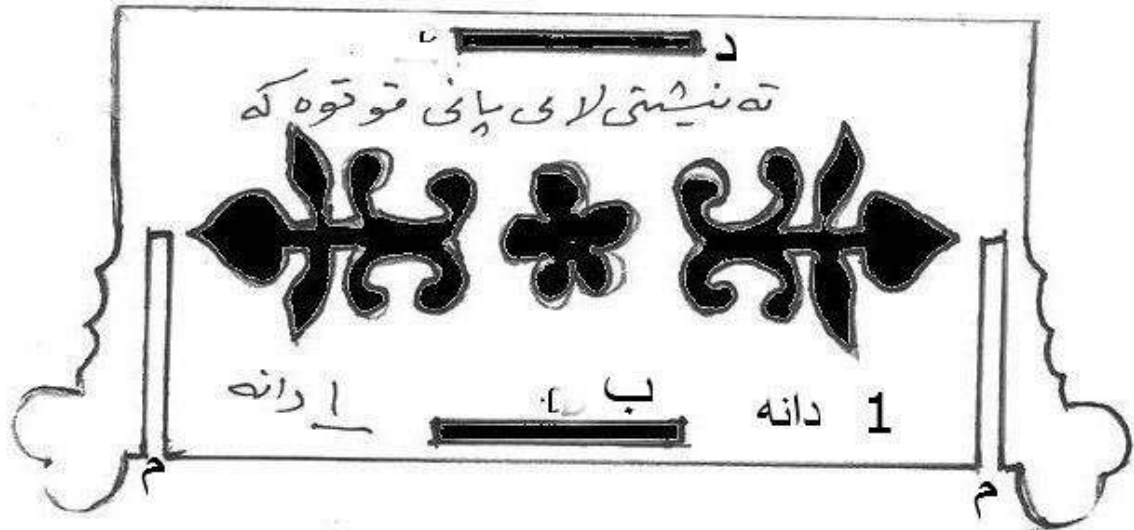 د
ته نیشتی لای پانی قوتوه که
ب
1 دانه
1 دانه
م
م